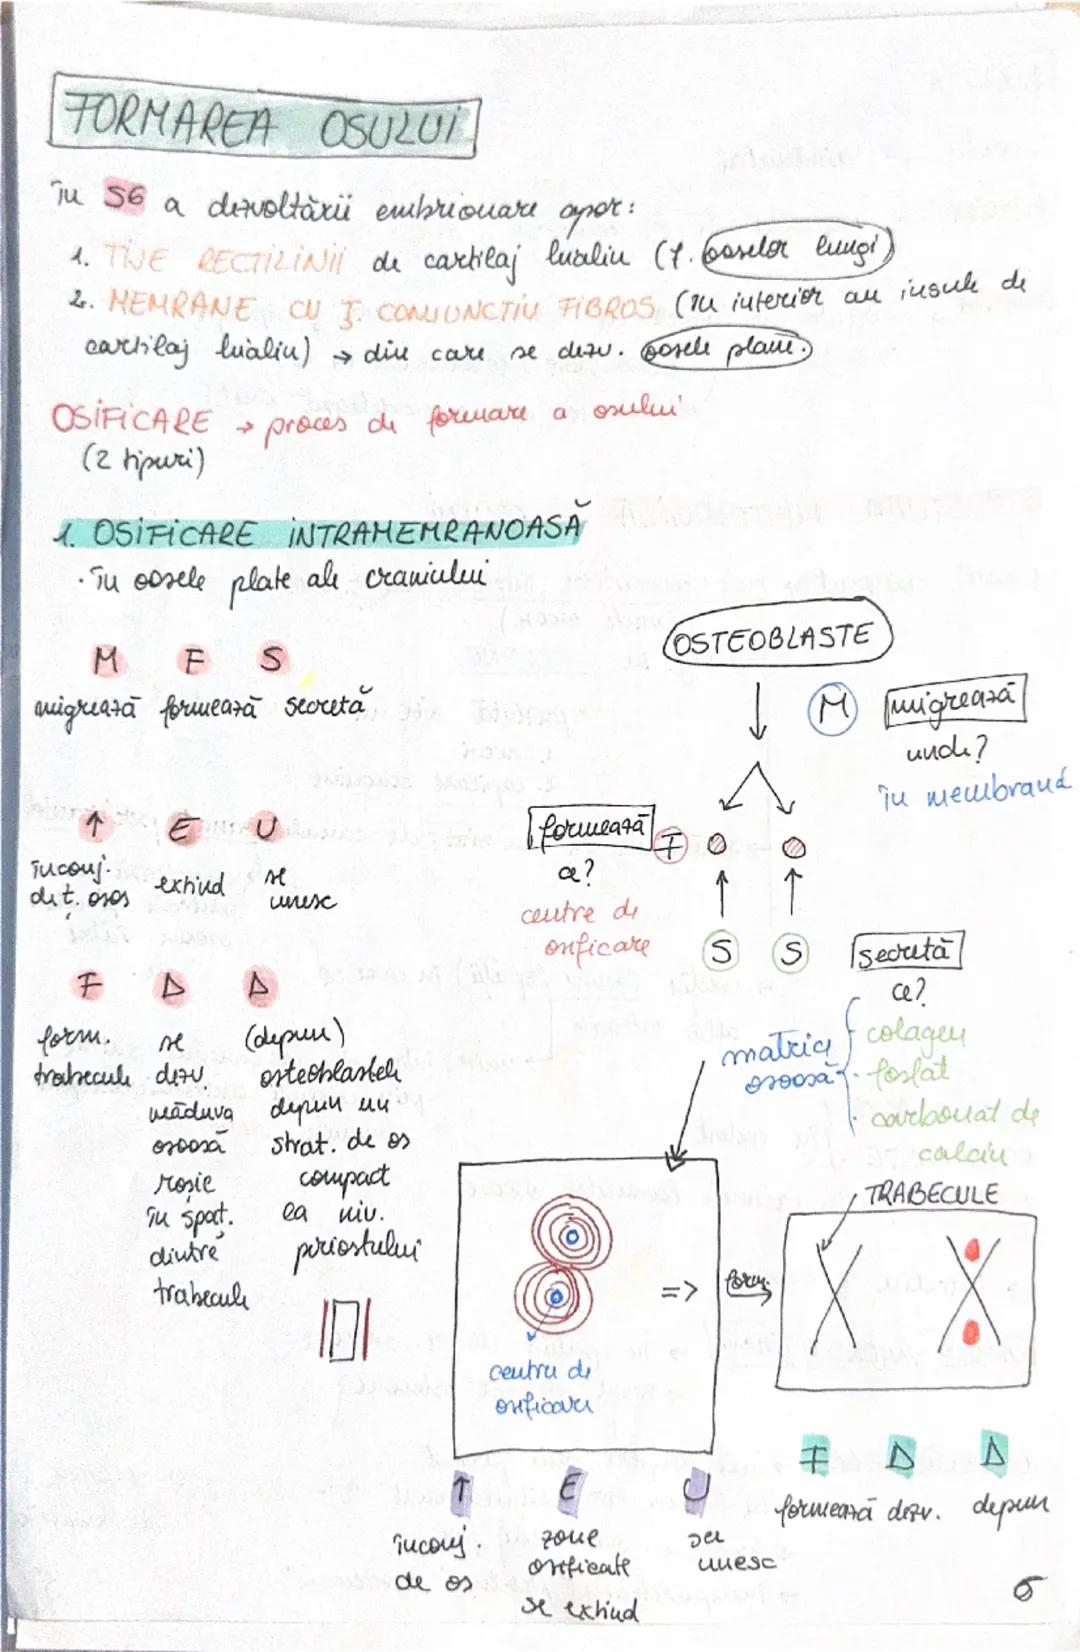 FORMAREA OSULUI
În S6 a dezvoltării embrionare apar:
1. TIJE RECTILINII de cartilaj hialin (f. oaselor lungi)
2. MEMRANE CU Ț. CONJUNCTIV FIBROS (în interior au insule de
cartilaj hialin) → din care se dezv. oasele plane.
OSIFICARE → proces de formare a osului
(2 tipuri)
1. OSIFICARE INTRAMEMRANOASĂ
· În oasele plate ale craniului
M F S
migrează formează secretă
Î E U
înconj. extind se
de ț. osos unesc
F D D
form. se (depun)
trabecule dezv. osteoblastele
măduva depun un
osoasă strat. de os
roșie compact
în spaț. la niv.
dintre periostului
trabecule
OSTEOBLASTE
M migrează
unde?
în membrană
formează F
ce?
centre de
osificare
S S secretă
ce?
matrice colagen
osoasă fosfat
carbonat de
calciu
centru de
osificare
=> form.
TRABECULE
Î E U
înconj. zone se
de os osificate unesc
se extind
F D D
formează dezv. depun
6